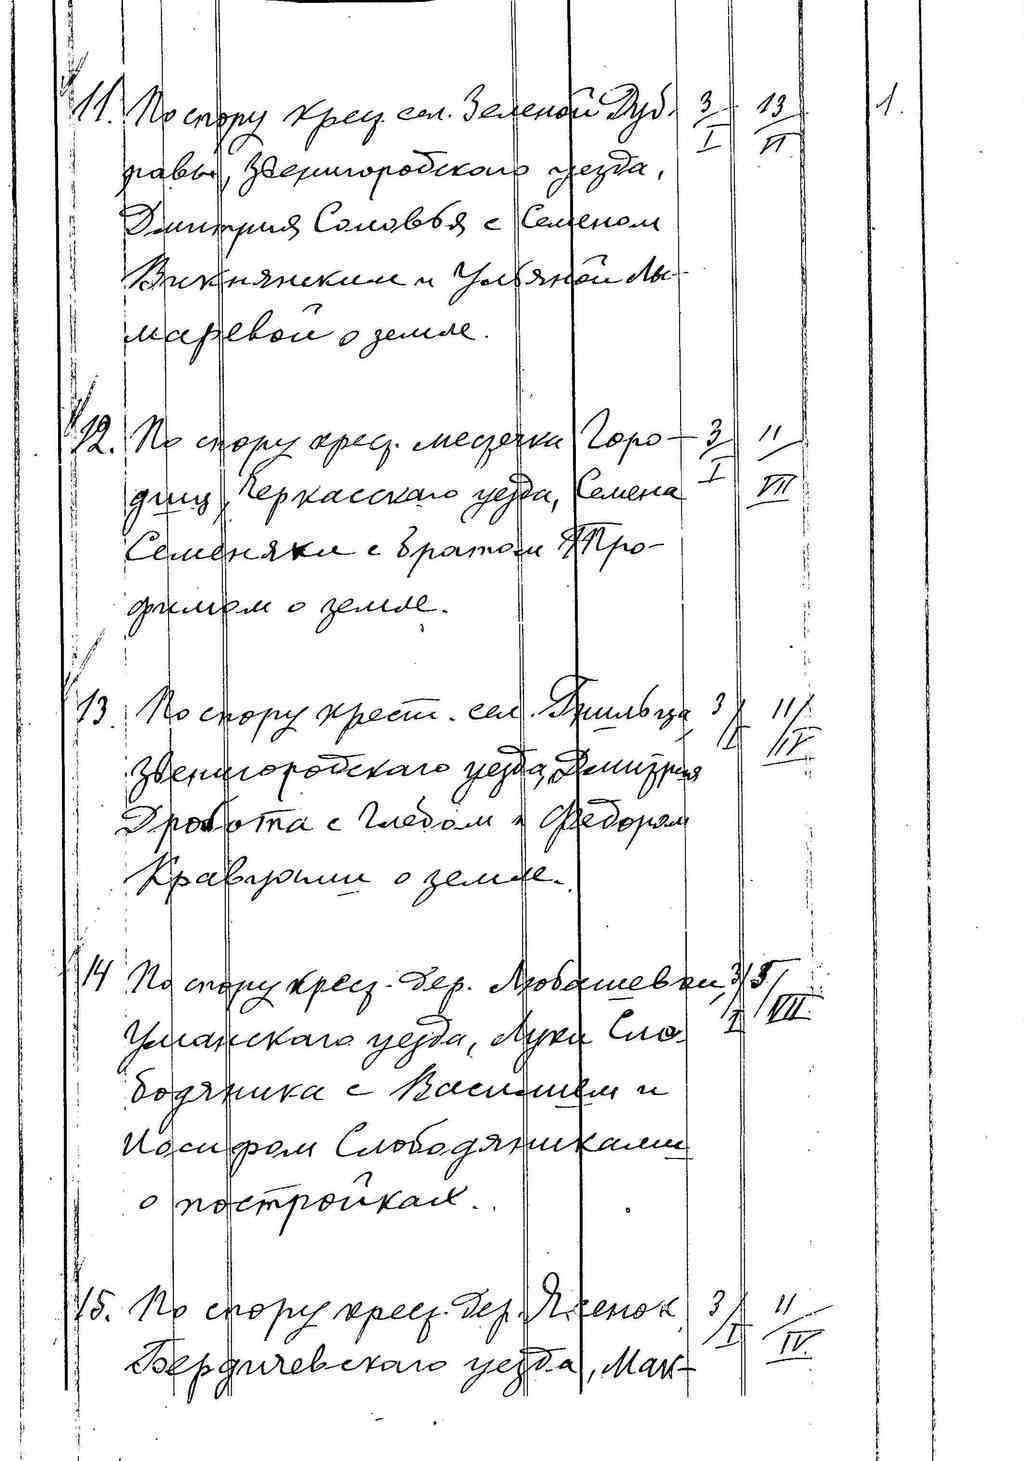 11. По спору крест. сел. Зеленой Дуб- 3/I 13/VI 1.
равы, Звенигородского уезда,
Дмитрия Соловья с Семеном
Викнянским и Ульяной Лы-
маревой о земле.
12. По спору крест. местечка Горо- 3/I 11/VII
дищ, Черкасскаго уезда, Семена
Семеняки с братом Тро-
фимом о земле.
13. По спору крест. сел. Гнильца, 3/I 11/IV
Звенигородскаго уезда, Дмитрия
Дробота с Глебом и Федором
Кравцами о земле.
14 По спору крест. дер. Любашевки, 3/I 5/VII
Уманскаго уезда, Луки Сло-
бодяника с Василием и
Иосифом Слободяниками
о постройках.
15. По спору крест. дер. Ясенок 3/I 11/IV
Бердичевскаго уезда, Мак-